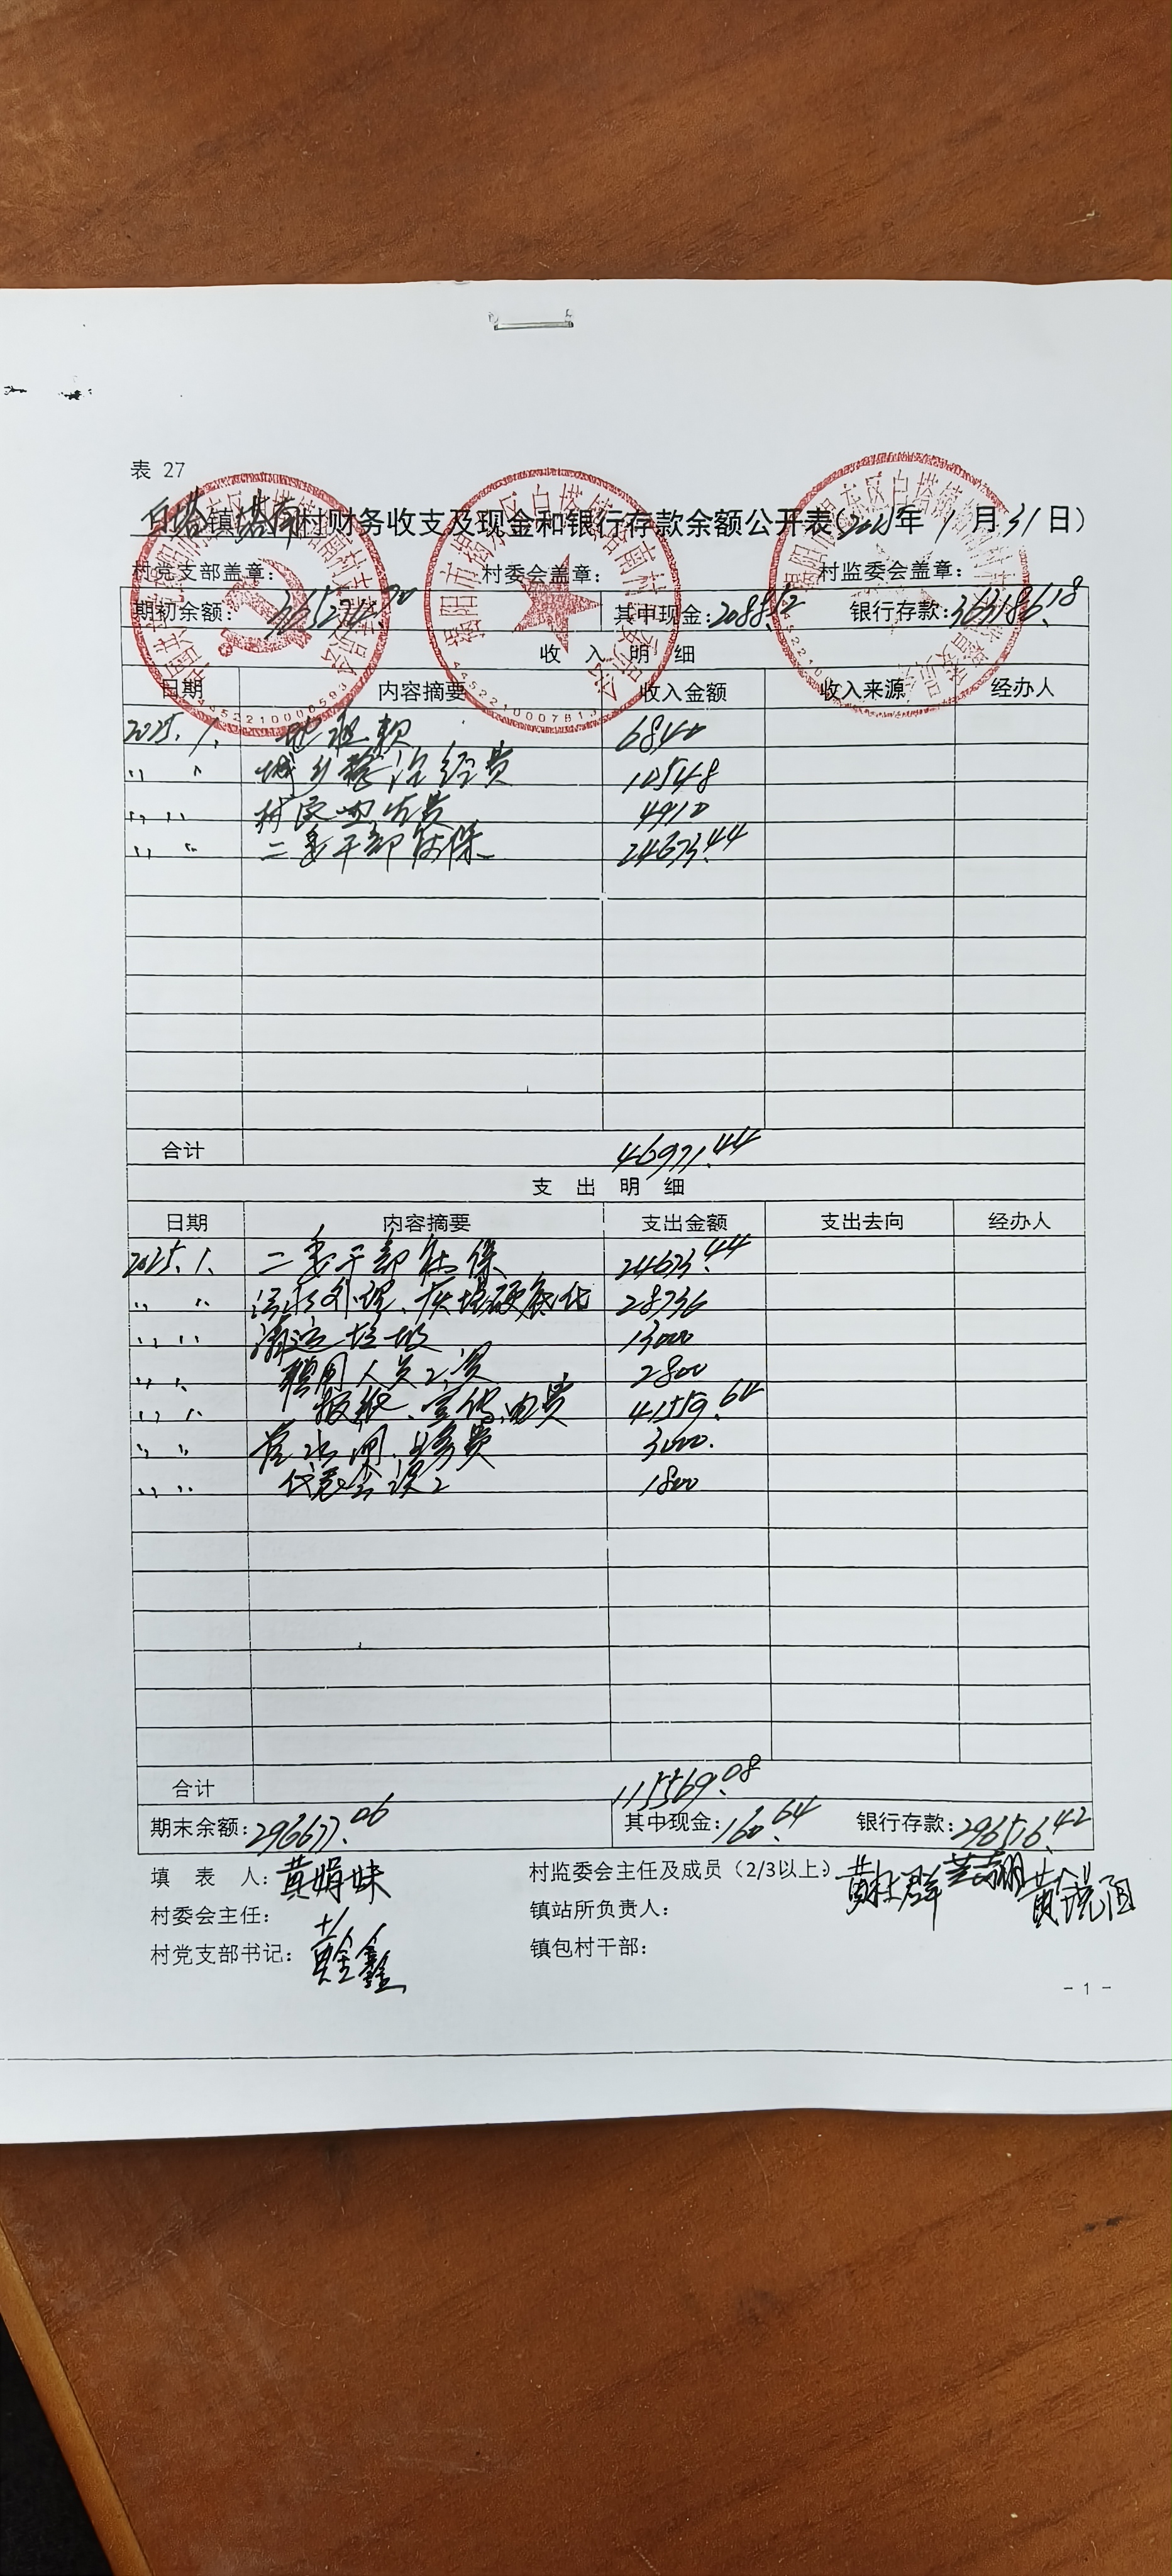 表 27
白塔镇塔南村财务收支及现金和银行存款余额公开表(2025年 1 月 31 日)
村党支部盖章: 村委会盖章: 村监委会盖章:
期初余额: 365274.70 其中现金:2088.52 银行存款:363186.18
收 入 明 细
日期 内容摘要 收入金额 收入来源 经办人
2025.1. 地租款 6840
〃 〃 城乡整治经费 10548
〃 〃 村民 4910
〃 〃 二委干部社保 24673.44
合计 46971.44
支 出 明 细
日期 内容摘要 支出金额 支出去向 经办人
2025.1. 二委干部社保 24673.44
〃 〃 污水处理、硬底化 28736
〃 〃 清运垃圾 13000
〃 〃 聘用人员工资 2800
〃 〃 报纸、宣传、电费 41559.64
〃 〃 管水闸、费 3000.
〃 〃 代表会误工 1800
合计 115569.08
期末余额:296677.06 其中现金:160.64 银行存款:296516.42
填 表 人:黄娟妹 村监委会主任及成员(2/3以上):
村委会主任: 镇站所负责人:
村党支部书记:黄金鑫 镇包村干部:
- 1 -